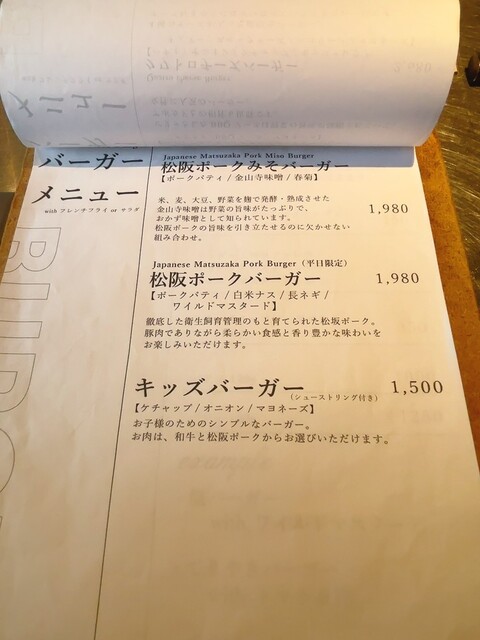 バーガー
メニュー
with フレンチフライ or サラダ
Japanese Matsuzaka Pork Miso Burger
松阪ポークみそバーガー
【ポークパティ / 金山寺味噌 / 春菊】
米、麦、大豆、野菜を麹で発酵・熟成させた
金山寺味噌は野菜の旨味がたっぷりで、
おかず味噌として知られています。
松阪ポークの旨味を引き立たせるのに欠かせない
組み合わせ。
1,980
Japanese Matsuzaka Pork Burger（平日限定）
松阪ポークバーガー
1,980
【ポークパティ / 白米ナス / 長ネギ /
ワイルドマスタード】
徹底した衛生飼育管理のもと育てられた松坂ポーク。
豚肉でありながら柔らかい食感と香り豊かな味わいを
お楽しみいただけます。
キッズバーガー
（シューストリング付き）
1,500
【ケチャップ / オニオン / マヨネーズ】
お子様のためのシンプルなバーガー。
お肉は、和牛と松阪ポークからお選びいただけます。